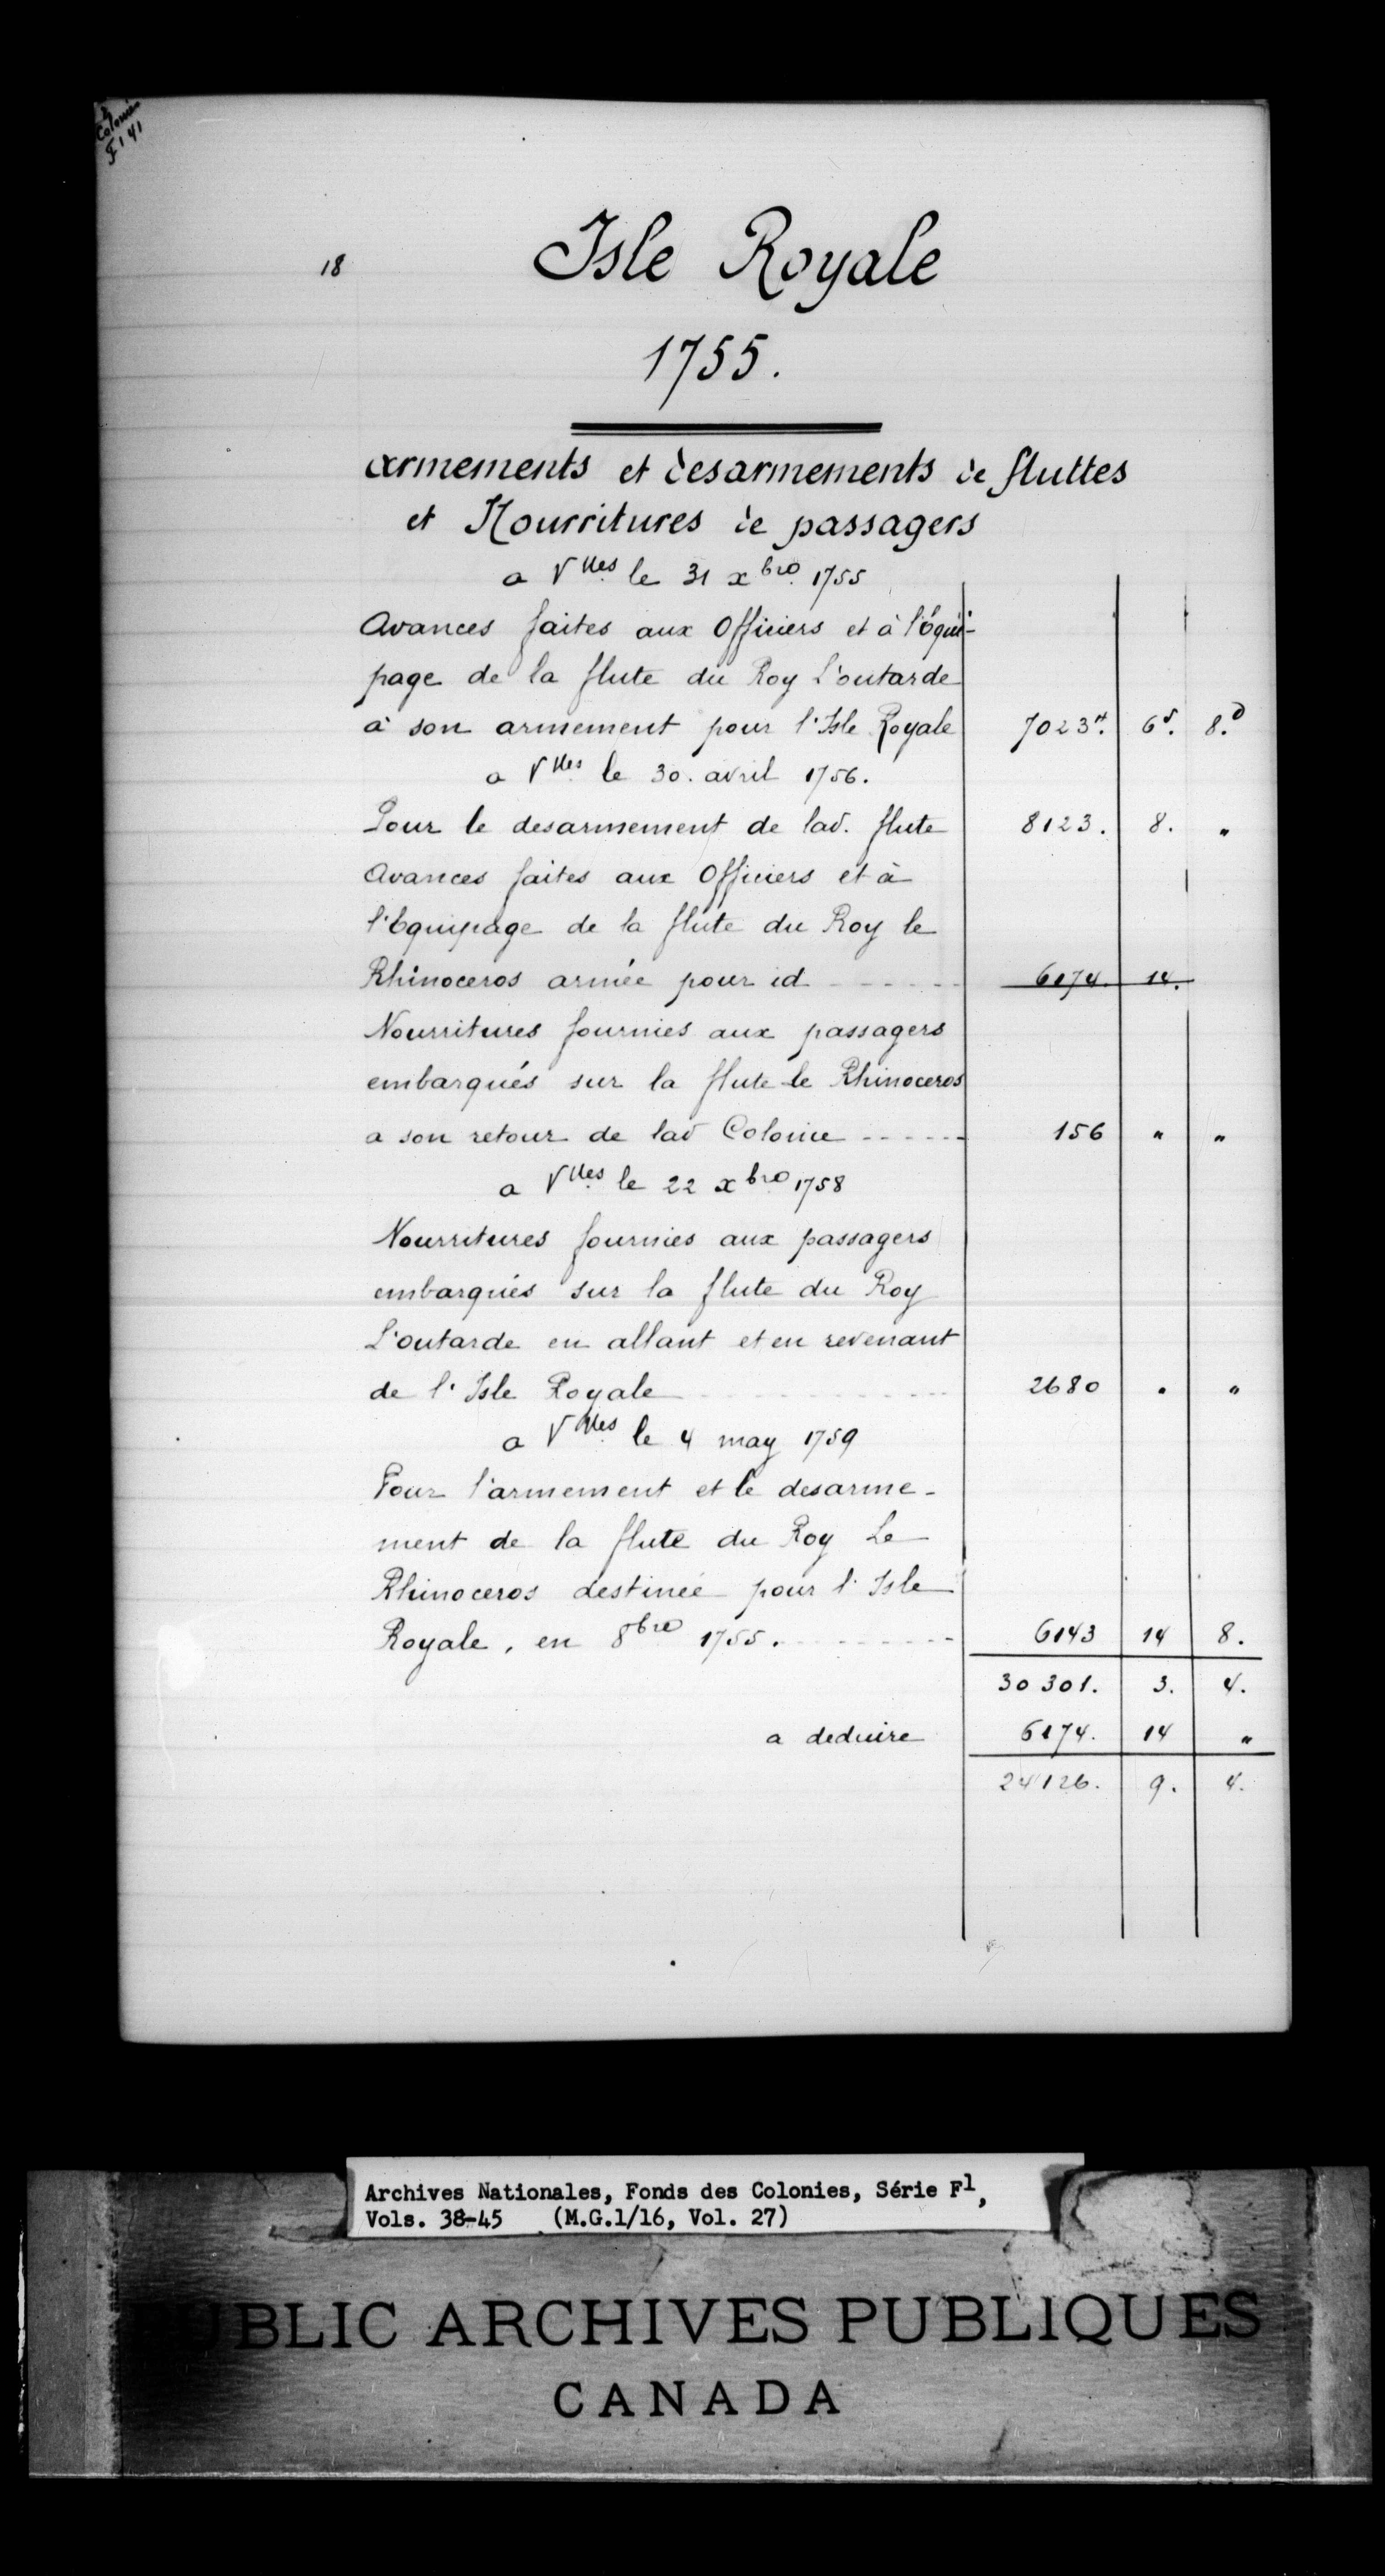 Colonies
F 1 41
18
Isle Royale
1755.
armements et desarmements de fluttes
et Nourritures de passagers
a Vlles le 31 xbre 1755
Avances faites aux Officiers et à l'équi-
page de la flute du Roy L'outarde
à son armement pour l'Isle Royale 7023.# 6.s 8.d
a Vlles le 30. avril 1756.
Pour le desarmement de lad. flute 8123. 8. "
Avances faites aux Officiers et à
l'Equipage de la flute du Roy le
Rhinoceros armée pour id ------ 6174. 14.
Nourritures fournies aux passagers
embarqués sur la flute le Rhinoceros
a son retour de lad Colonie ------ 156 " "
a Vlles le 22 xbre 1758
Nourritures fournies aux passagers
embarqués sur la flute du Roy
L'outarde en allant et en revenant
de l'Isle Royale ------ 2680 . "
a Vlles le 4 may 1759
Pour l'armement et le desarme-
ment de la flute du Roy Le
Rhinoceros destinée pour l'Isle
Royale, en 8bre 1755. ------ 6143 14 8.
30301. 3. 4.
a deduire 6174. 14 "
24126. 9. 4.
Archives Nationales, Fonds des Colonies, Série F1,
Vols. 38-45 (M.G.1/16, Vol. 27)
PUBLIC ARCHIVES PUBLIQUES
CANADA